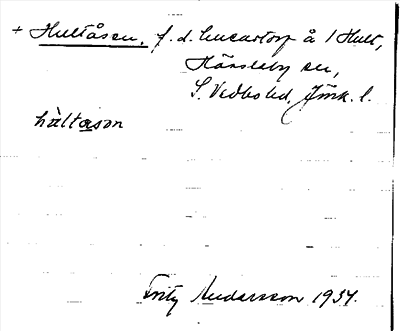 + Hultåsen, f.d. lucastorp å 1 Hult,
Hässleby sn,
S. Vedbo hd, Jönk. l.
hàltasən
Fritz Andersson 1934.